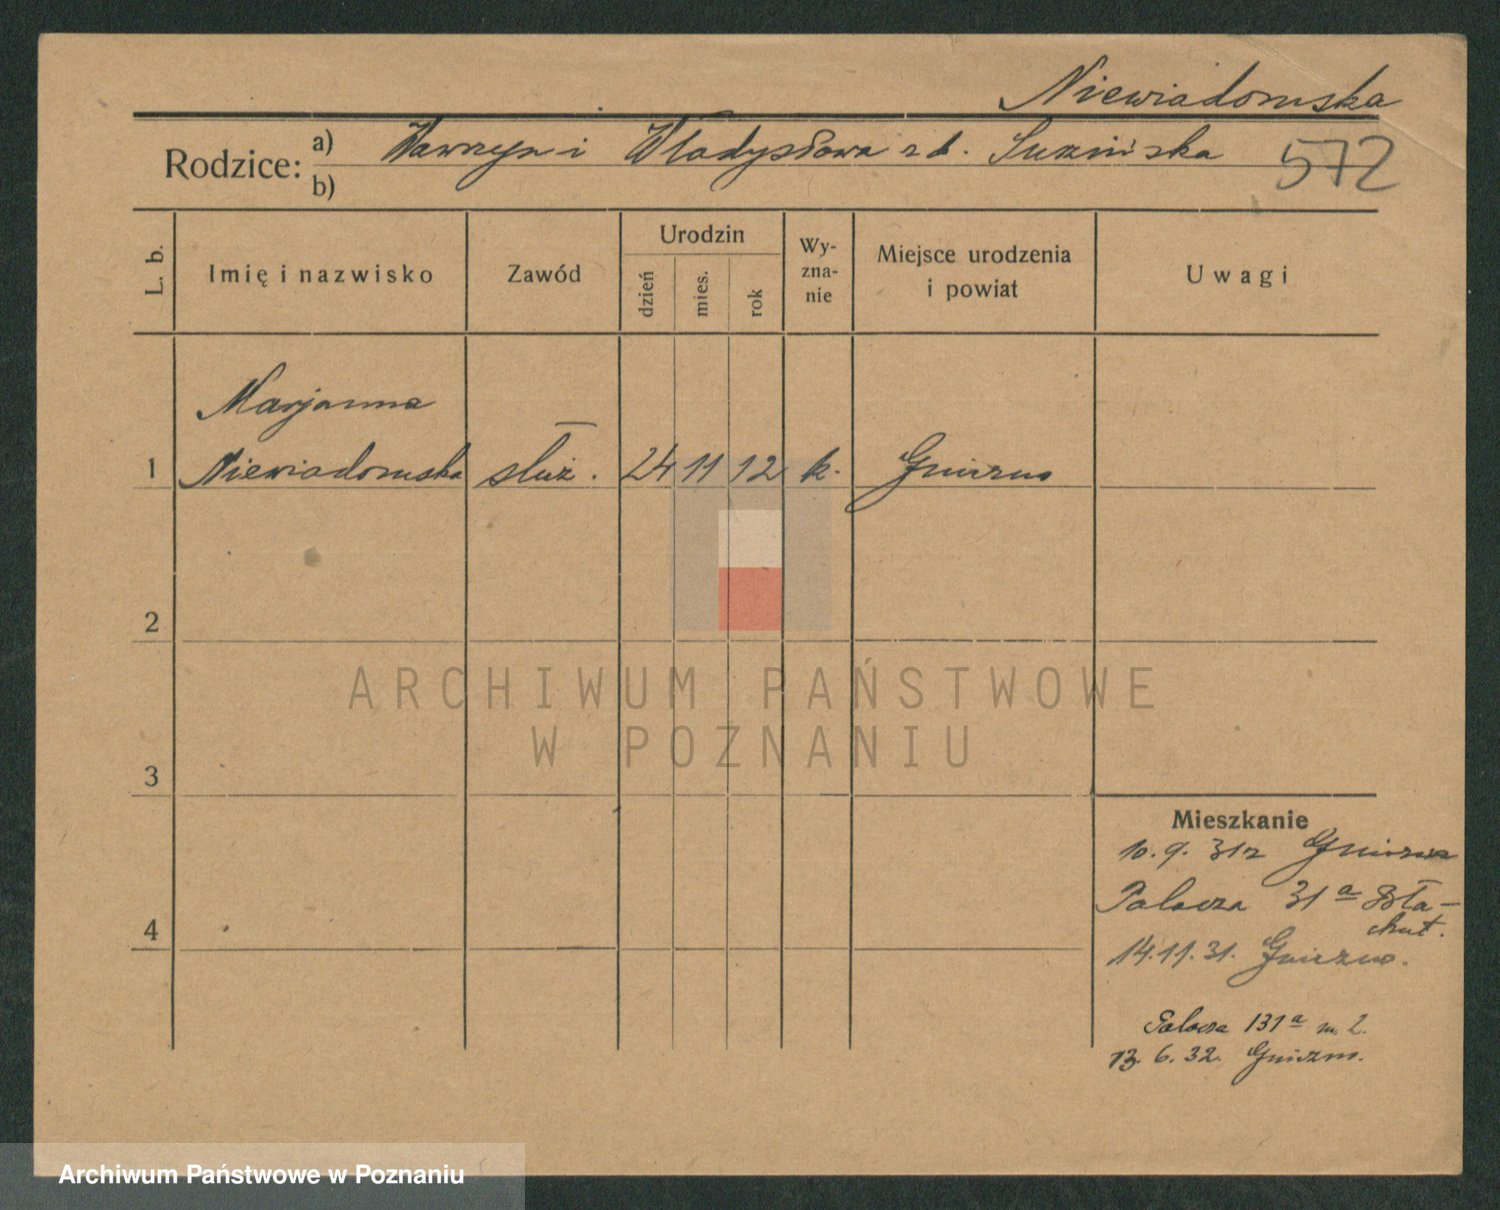 Niewiadomska
Rodzice: a) Wawrzyn i Władysława zd. 572
b)
L. b. Imię i nazwisko Zawód Urodzin dzień mies. rok Wy-zna-nie Miejsce urodzenia i powiat Uwagi
Marjanna
1 Niewiadomska służ. 24 11 12 k. Gniezno
2
ARCHIWUM PAŃSTWOWE
W POZNANIU
3
Mieszkanie
10. 9. 31 r Gniezno
31a
4
14.11.31. Gniezno.
131a m. 2.
13. 6. 32. Gniezno.
Archiwum Państwowe w Poznaniu